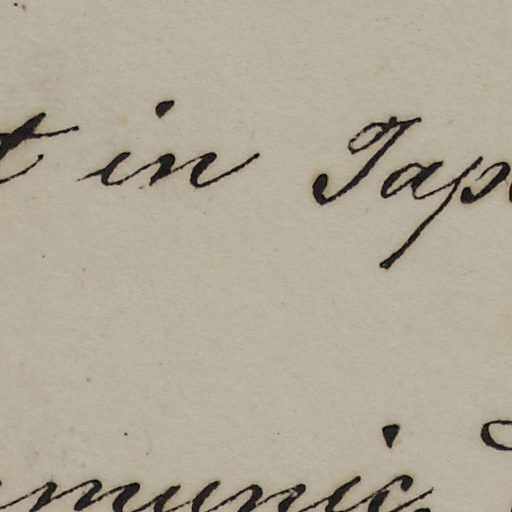 t in Jap
munic